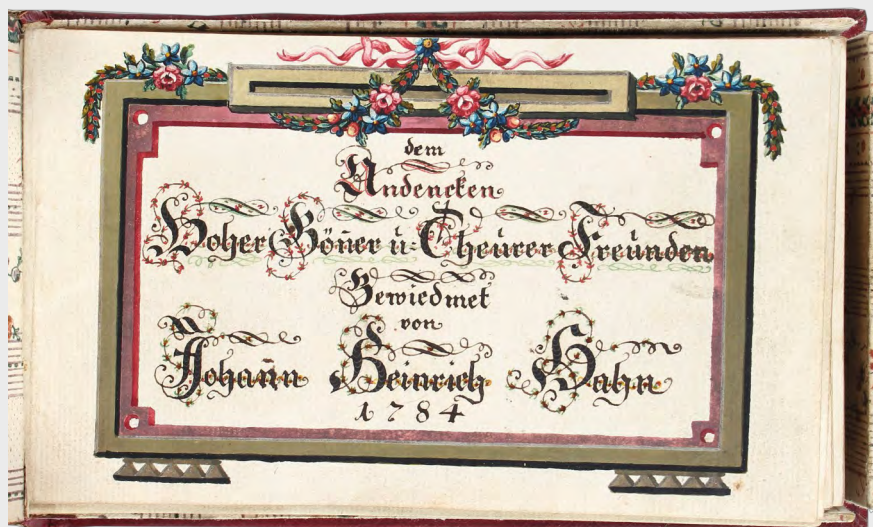 dem
Andencken
Hoher Göñer ù: Theùrer Freùnden
Gewiedmet
von
Johañn Heinrich Hahn
1784